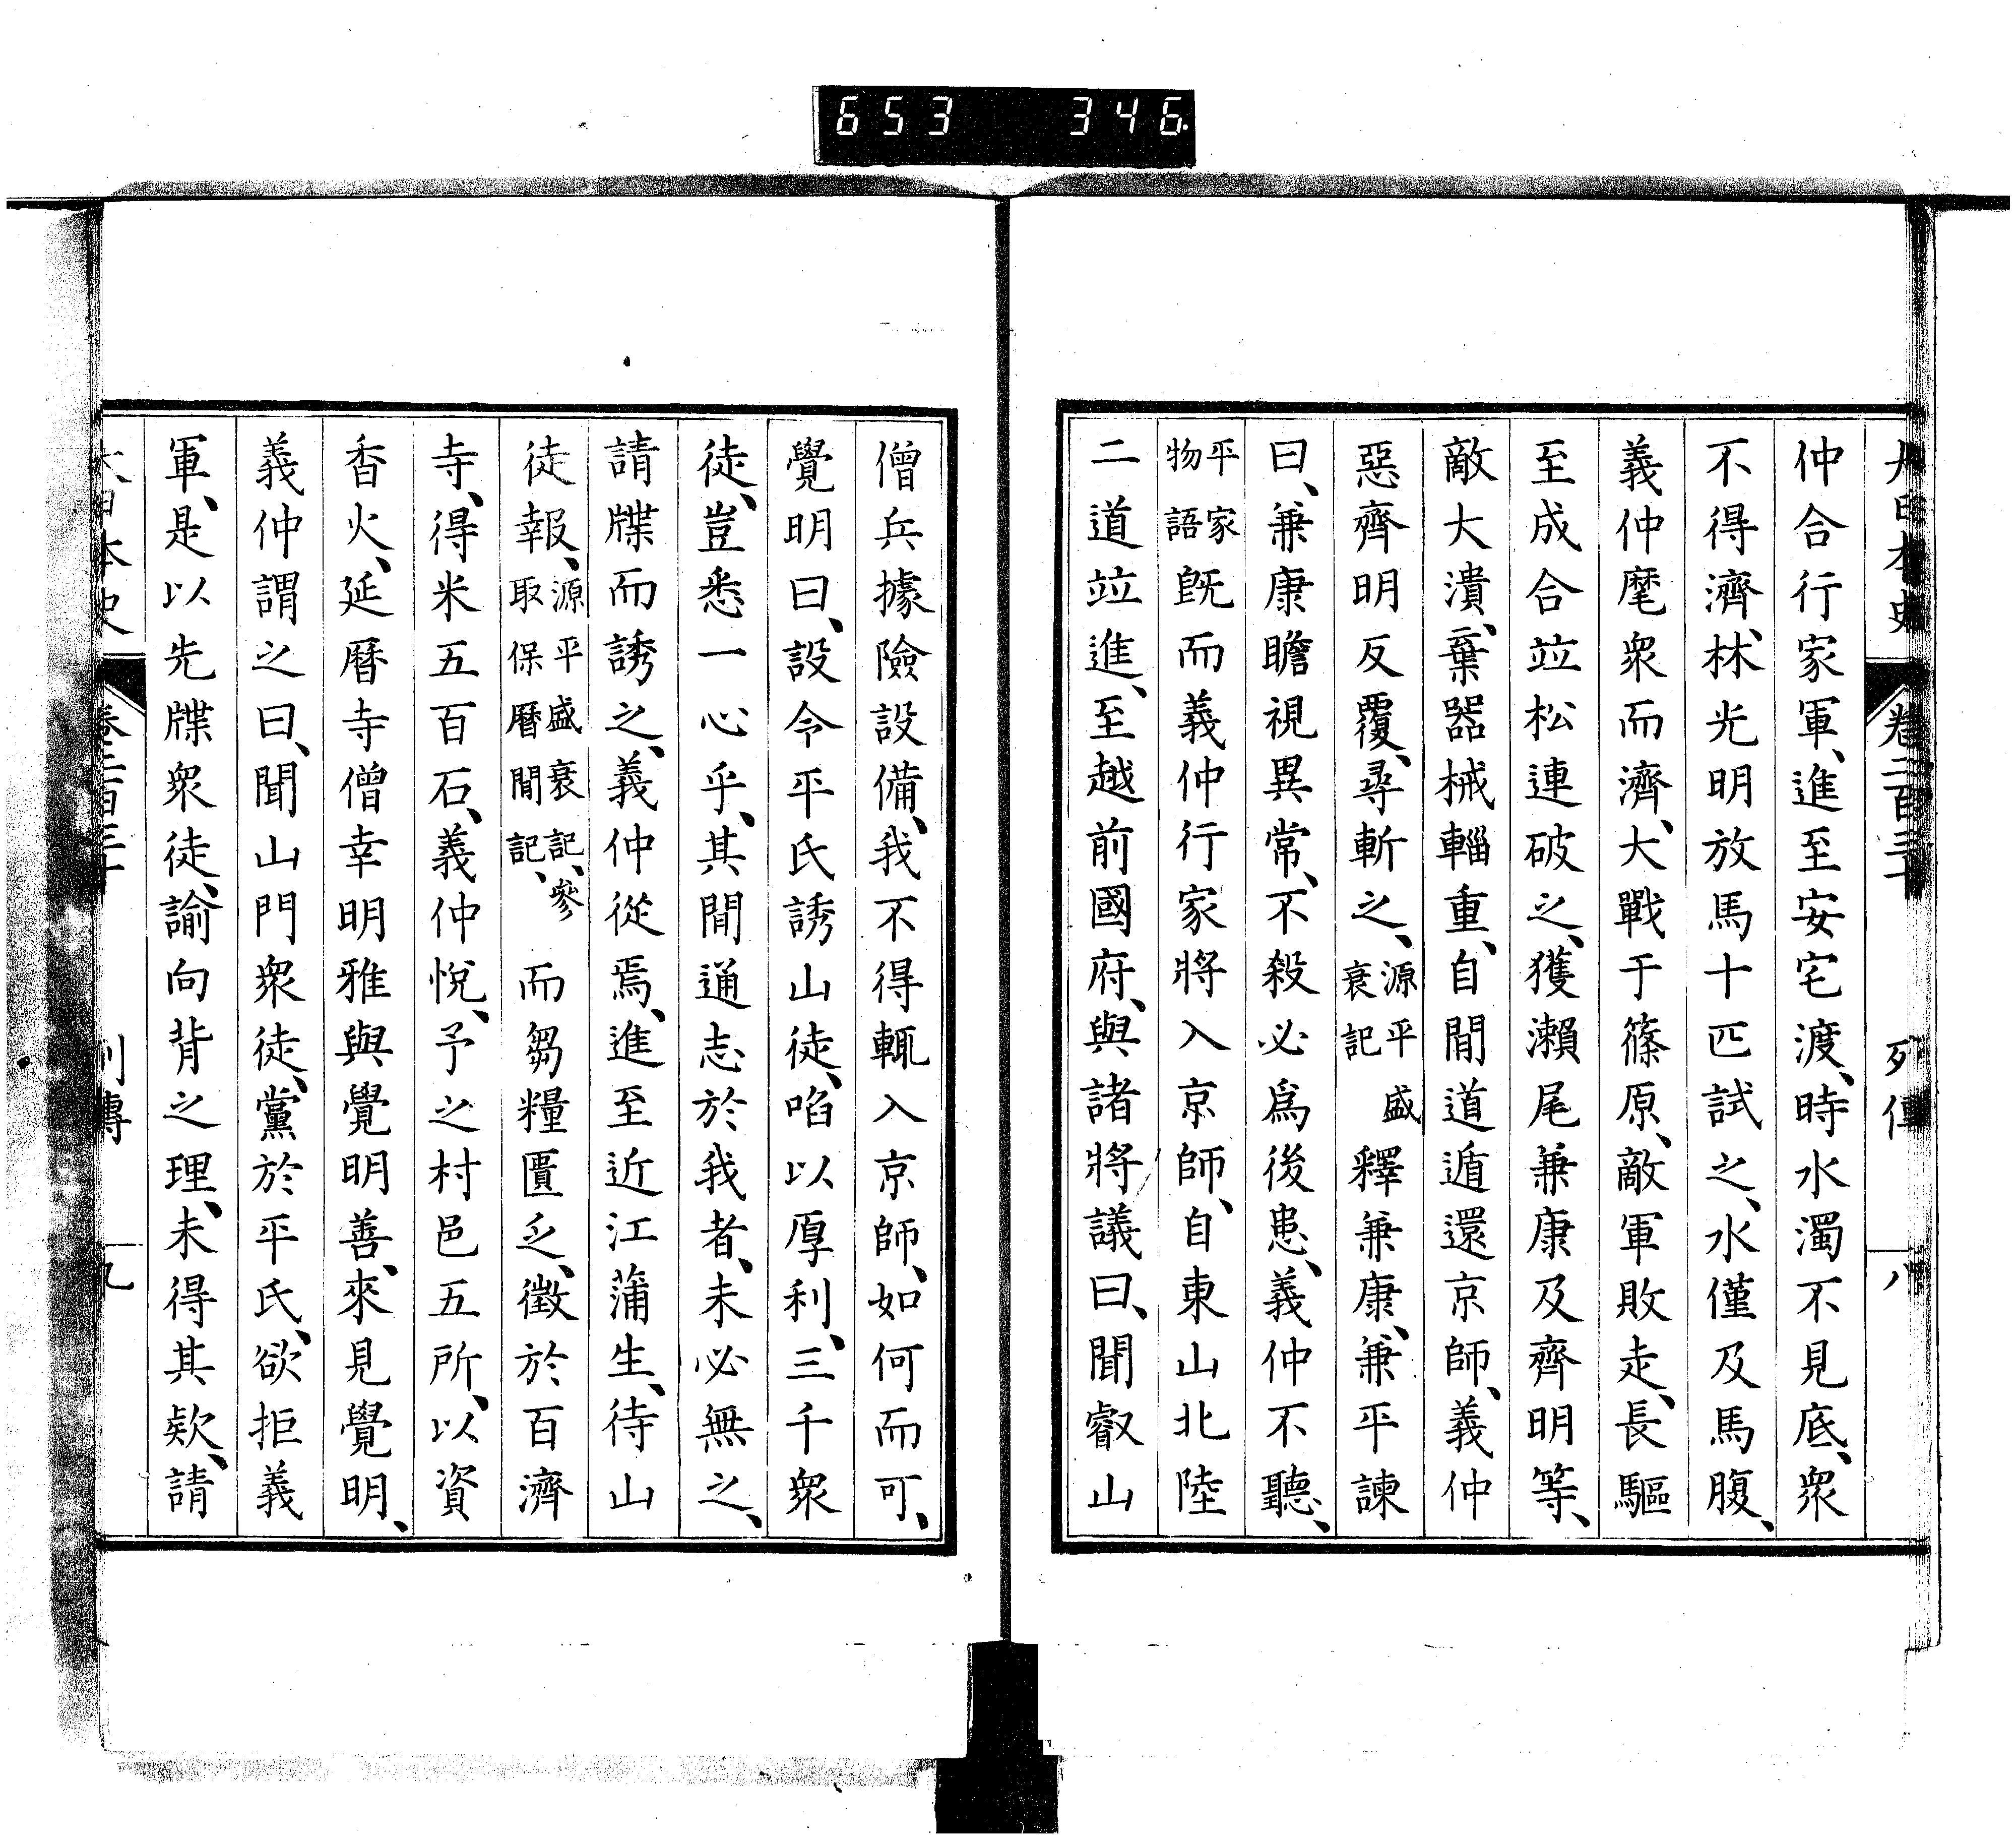 653 346
大日本史 卷二百三十 列傳 八
仲合行家軍、進至安宅渡、時水濁不見底、衆
不得濟、林光明放馬十匹試之、水僅及馬腹、
義仲麾衆而濟、大戰于篠原、敵軍敗走、長驅
至成合竝松連破之、獲瀨尾兼康及齊明等、
敵大潰、棄器械輜重、自閒道遁還京師、義仲
惡齊明反覆、尋斬之、源平盛衰記釋兼康、兼平諫
曰、兼康瞻視異常、不殺必爲後患、義仲不聽、
平家物語旣而義仲行家將入京師、自東山北陸
二道竝進、至越前國府、與諸將議曰、聞叡山
僧兵據險設備、我不得輒入京師、如何而可、
覺明曰、設令平氏誘山徒、啗以厚利、三千衆
徒、豈悉一心乎、其閒通志於我者、未必無之、
請牒而誘之、義仲從焉、進至近江蒲生、待山
徒報、源平盛衰記、參取保曆閒記、而芻糧匱乏、徵於百濟
寺、得米五百石、義仲悅、予之村邑五所、以資
香火、延曆寺僧幸明雅與覺明善、來見覺明、
義仲謂之曰、聞山門衆徒、黨於平氏、欲拒義
軍、是以先牒衆徒、諭向背之理、未得其欵、請
大日本史 卷二百三十 列傳 九